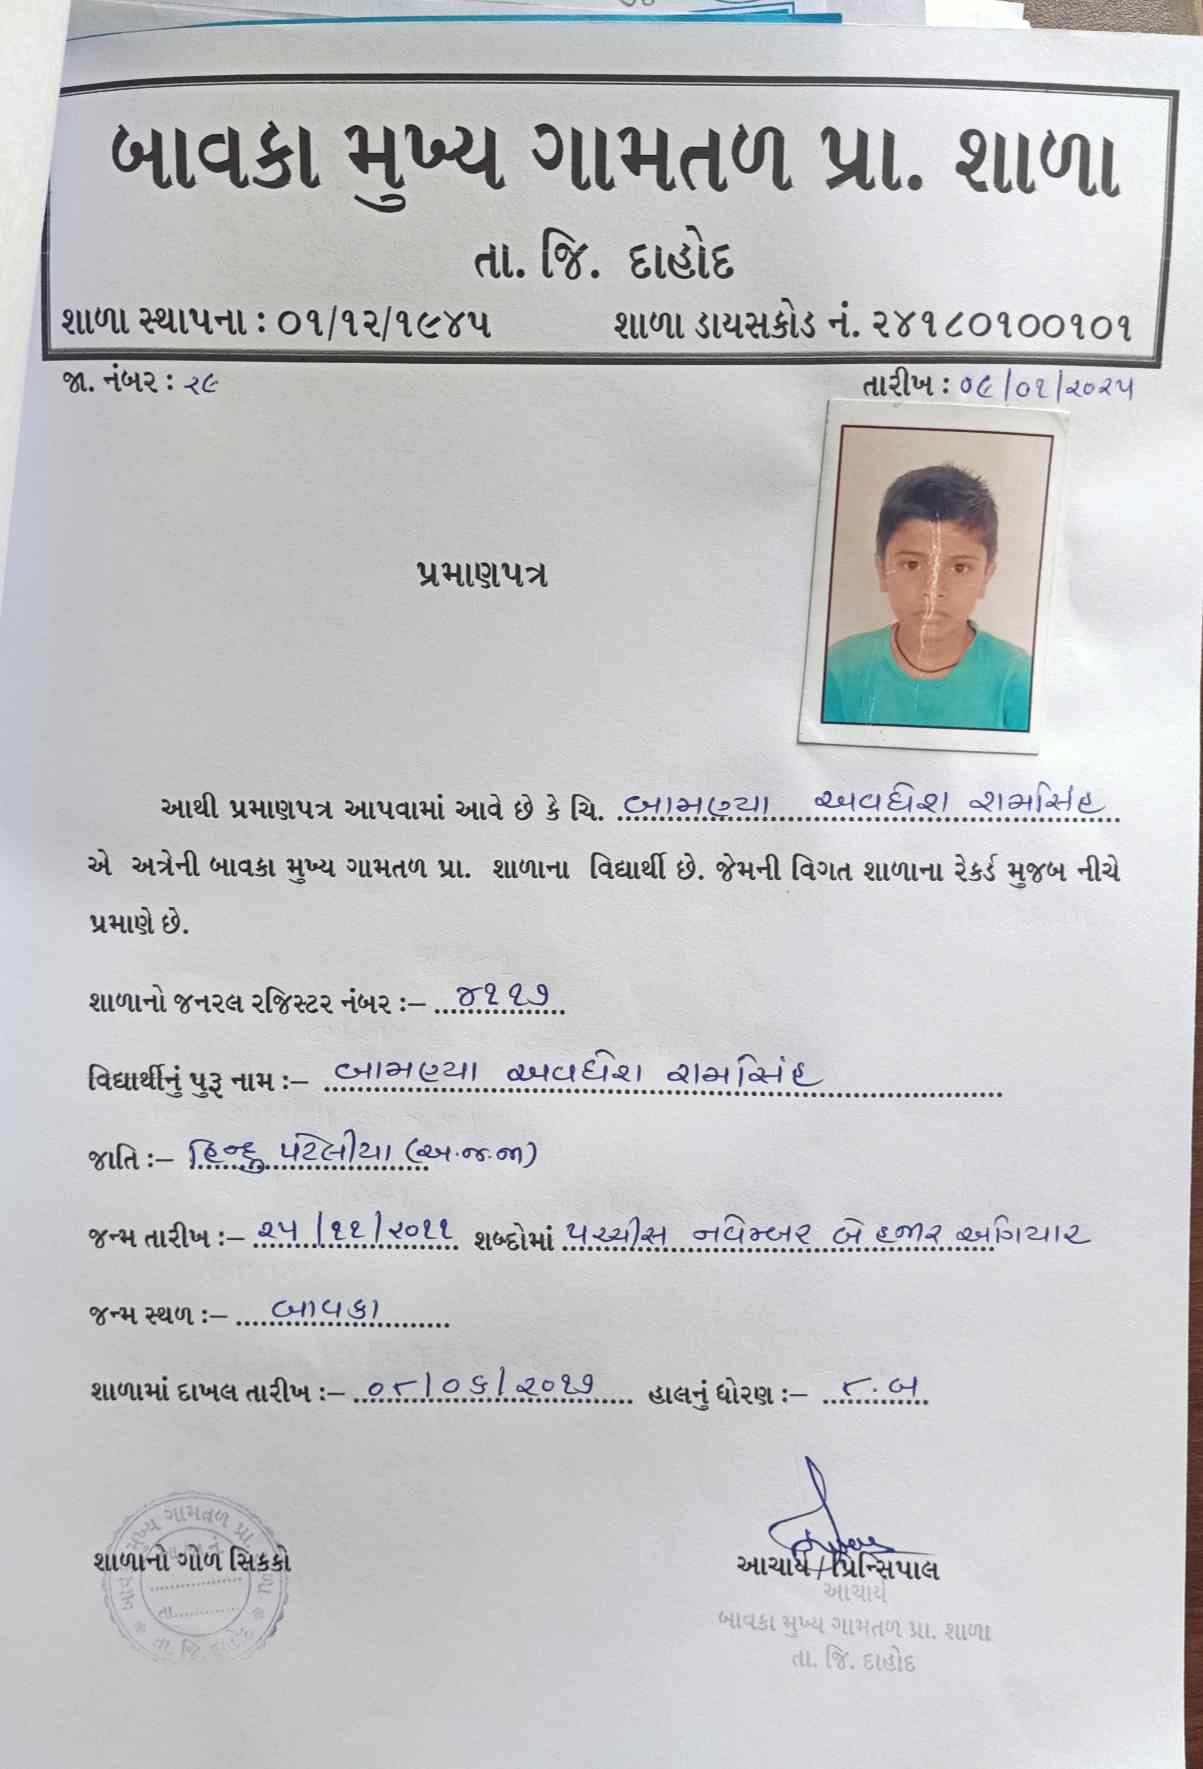 બાવકા મુખ્ય ગામતળ પ્રા. શાળા
તા. જિ. દાહોદ
શાળા સ્થાપના : ૦૧/૧૨/૧૯૪૫ શાળા ડાયસકોડ નં. ૨૪૧૮૦૧૦૦૧૦૧
જા. નંબર : ૨૯ તારીખ : ૦૯/૦૧/૨૦૨૫
પ્રમાણપત્ર
આથી પ્રમાણપત્ર આપવામાં આવે છે કે ચિ. બામણ્યા અવધેશ રામસિંહ
એ અત્રેની બાવકા મુખ્ય ગામતળ પ્રા. શાળાના વિદ્યાર્થી છે. જેમની વિગત શાળાના રેકર્ડ મુજબ નીચે
પ્રમાણે છે.
શાળાનો જનરલ રજિસ્ટર નંબર :– ૪૧૧૭
વિદ્યાર્થીનું પુરૂ નામ :– બામણ્યા અવધેશ રામસિંહ
જાતિ :– હિન્દુ પટેલીયા (અ.જ.જા)
જન્મ તારીખ :– ૨૫/૧૧/૨૦૧૧ શબ્દોમાં પચ્ચીસ નવેમ્બર બે હજાર અગિયાર
જન્મ સ્થળ :– બાવકા
શાળામાં દાખલ તારીખ :– ૦૮/૦૬/૨૦૧૭ હાલનું ધોરણ :– ૮.બ
શાળાનો ગોળ સિક્કો
આચાર્ય / પ્રિન્સિપાલ
આચાર્ય
બાવકા મુખ્ય ગામતળ પ્રા. શાળા
તા. જિ. દાહોદ